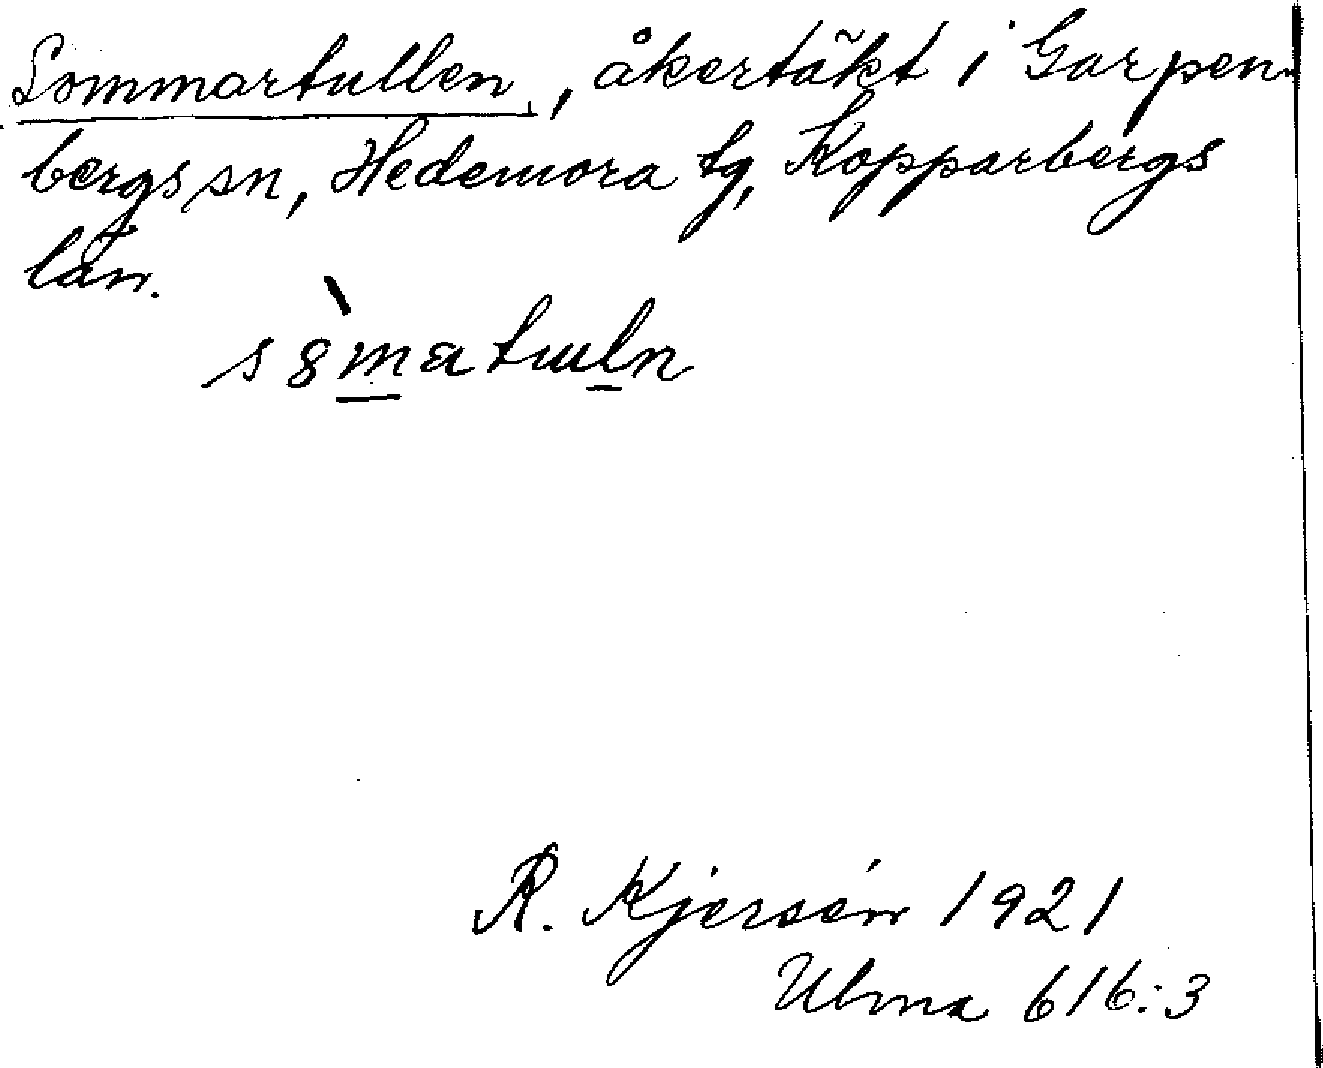 Sommartullen, åkertäkt i Garpen-
bergs sn, Hedemora tg, Kopparbergs
län.
s8̀matuln
R. Kjersén 1921
Ulma 616:3